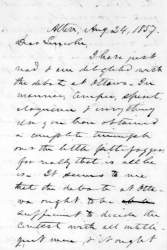 Alton, Aug 24, 1857.
Dear Lincoln,
I have just
read & am delighted with
the debate at Ottawa. In
manner, temper, spirit,
eloquence & everything
else you have obtained
a complete triumph
over the little pettifogger
for really that is all he
is. It seems to me
that the debate at Otta-
wa ought to be
sufficient to decide the
contest with all intelli-
gent men, & it ought